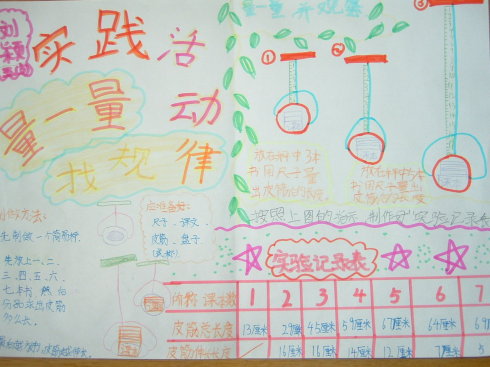 实践活动
量一量
找规律
量一量 并观察
①
②
③
放在秤中3本
书用尺子量
出皮筋的长度
放在秤中5本
书用尺子量出
皮筋的长度
按照上图的
制作方法:
先制做一个简易秤.
先放上一、二、
三、四、五、六、
七本书 然后
分别求出皮筋
多么长.
应准备好:
尺子、课文
皮筋、盘子
实验记录表
所称课本数 1 2 3 4 5 6 7
皮筋总长度 13厘米 29厘米 45厘米 59厘米 67厘米 64厘米 69
皮筋伸长长度 16厘米 16厘米 14厘米 12厘米 7厘米 5